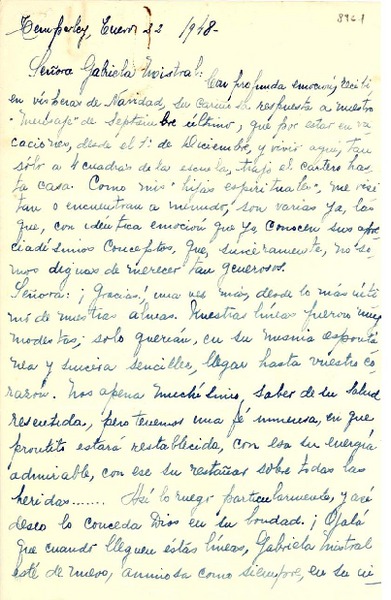 896.1
Temperley, Enero 22 1948-
Señora Gabriela Mistral:
Con profunda emoción, recibí
en vísperas de Navidad, su cariñosa respuesta a nuestro
"mensaje" de Septiembre último, que por estar en va-
caciones, desde el 1º de Diciembre, y vivir aquí, tan
sólo a 4 cuadras de la escuela, trajo el cartero has-
ta casa. Como mis "hijas espirituales", me visi-
tan o encuentran a menudo, son varias ya, las
que, con idéntica emoción que yo, conocen sus apre-
ciadísimos conceptos, que, sinceramente, no so-
mos dignas de merecer tan generosos.
Señora: ¡Gracias! una vez más, desde lo más ínti-
mo de nuestras almas. Nuestras líneas fueron muy
modestas; solo querían, en su misma espontá-
nea y sincera sencillez, llegar hasta vuestro co-
razón. Nos apena muchísimo, saber de su salud
resentida, pero tenemos una fé inmensa, en que
prontito estará restablecida, con esa su energía
admirable, con ese su restañar sobre todas las
heridas....... Así lo ruego particularmente, y así
deseo lo conceda Dios en su bondad. ¡Ojalá
que cuando lleguen éstas líneas, Gabriela Mistral
esté de nuevo, animosa como siempre, en su